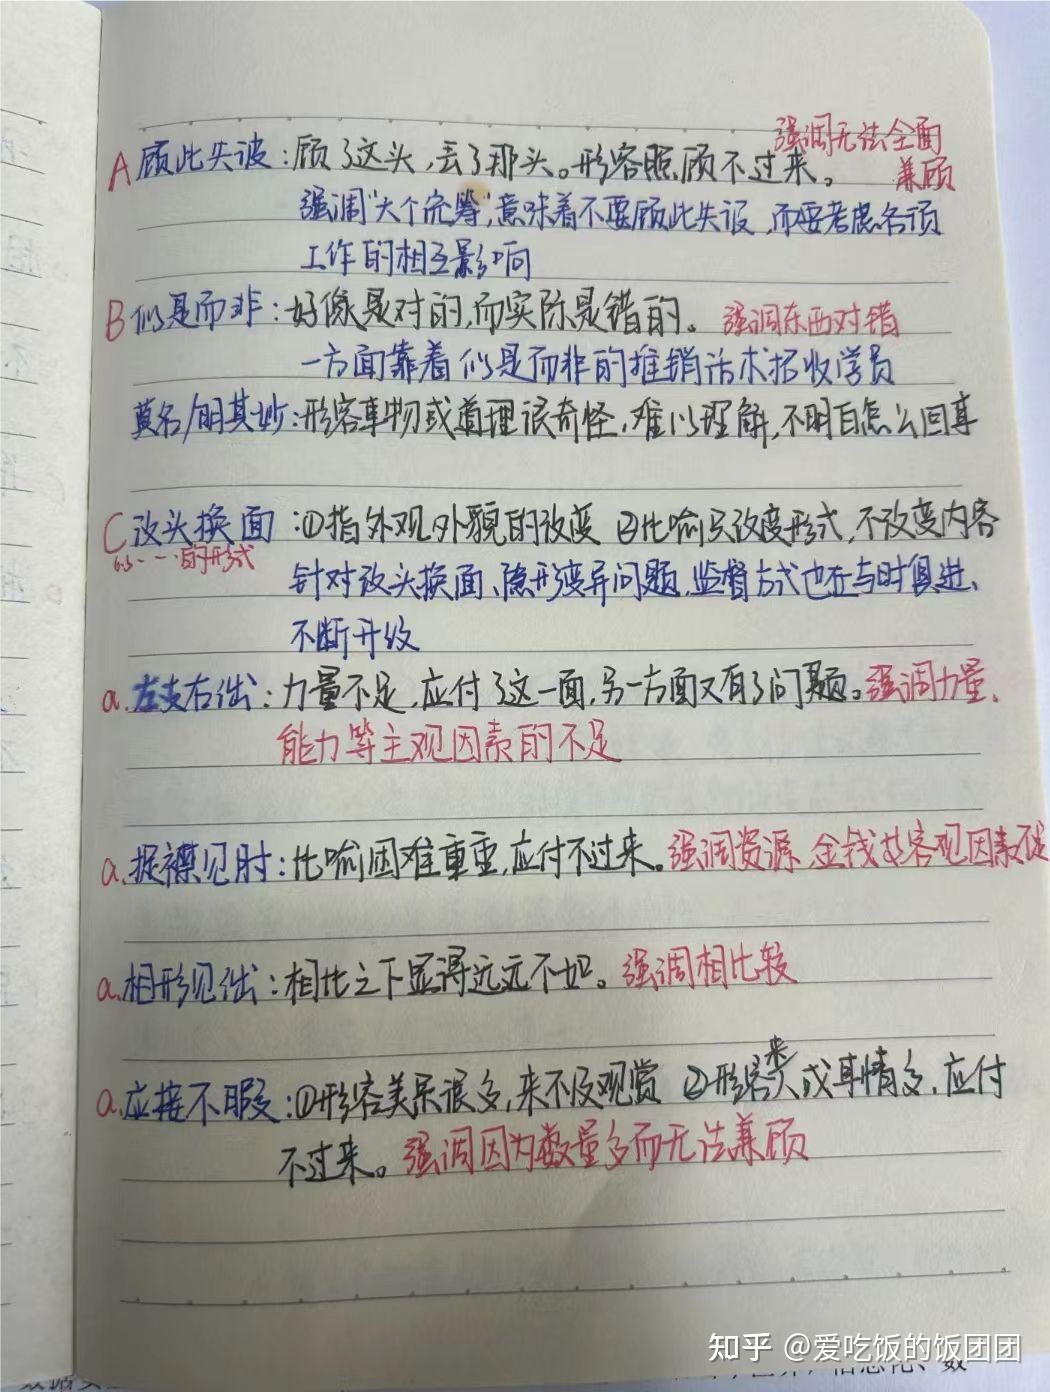 强调无法全面
兼顾
A 顾此失彼：顾了这头，丢了那头。形容照顾不过来。
强调“大个统筹”，意味着不要顾此失彼，而要考虑各项
工作的相互影响
B 似是而非：好像是对的，而实际是错的。 强调东西对错
一方面靠着似是而非的推销话术招收学员
莫名/明其妙：形容事物或道理很奇怪，难以理解，不明白怎么回事
C 改头换面：①指外观外貌的改变 ②比喻只改变形式，不改变内容
以……的形式
针对改头换面、隐形变异问题，监督方式也在与时俱进、
不断升级
a.左支右绌：力量不足，应付了这一面，另一方面又有了问题。强调力量、
能力等主观因素的不足
a.捉襟见肘：比喻困难重重，应付不过来。强调资源、金钱类客观因素不足
a.相形见绌：相比之下显得远远不如。强调相比较
a.应接不暇：①形容美景很多，来不及观赏 ②形容来人或事情多，应付
不过来。强调因为数量多而无法兼顾
知乎 @爱吃饭的饭团团